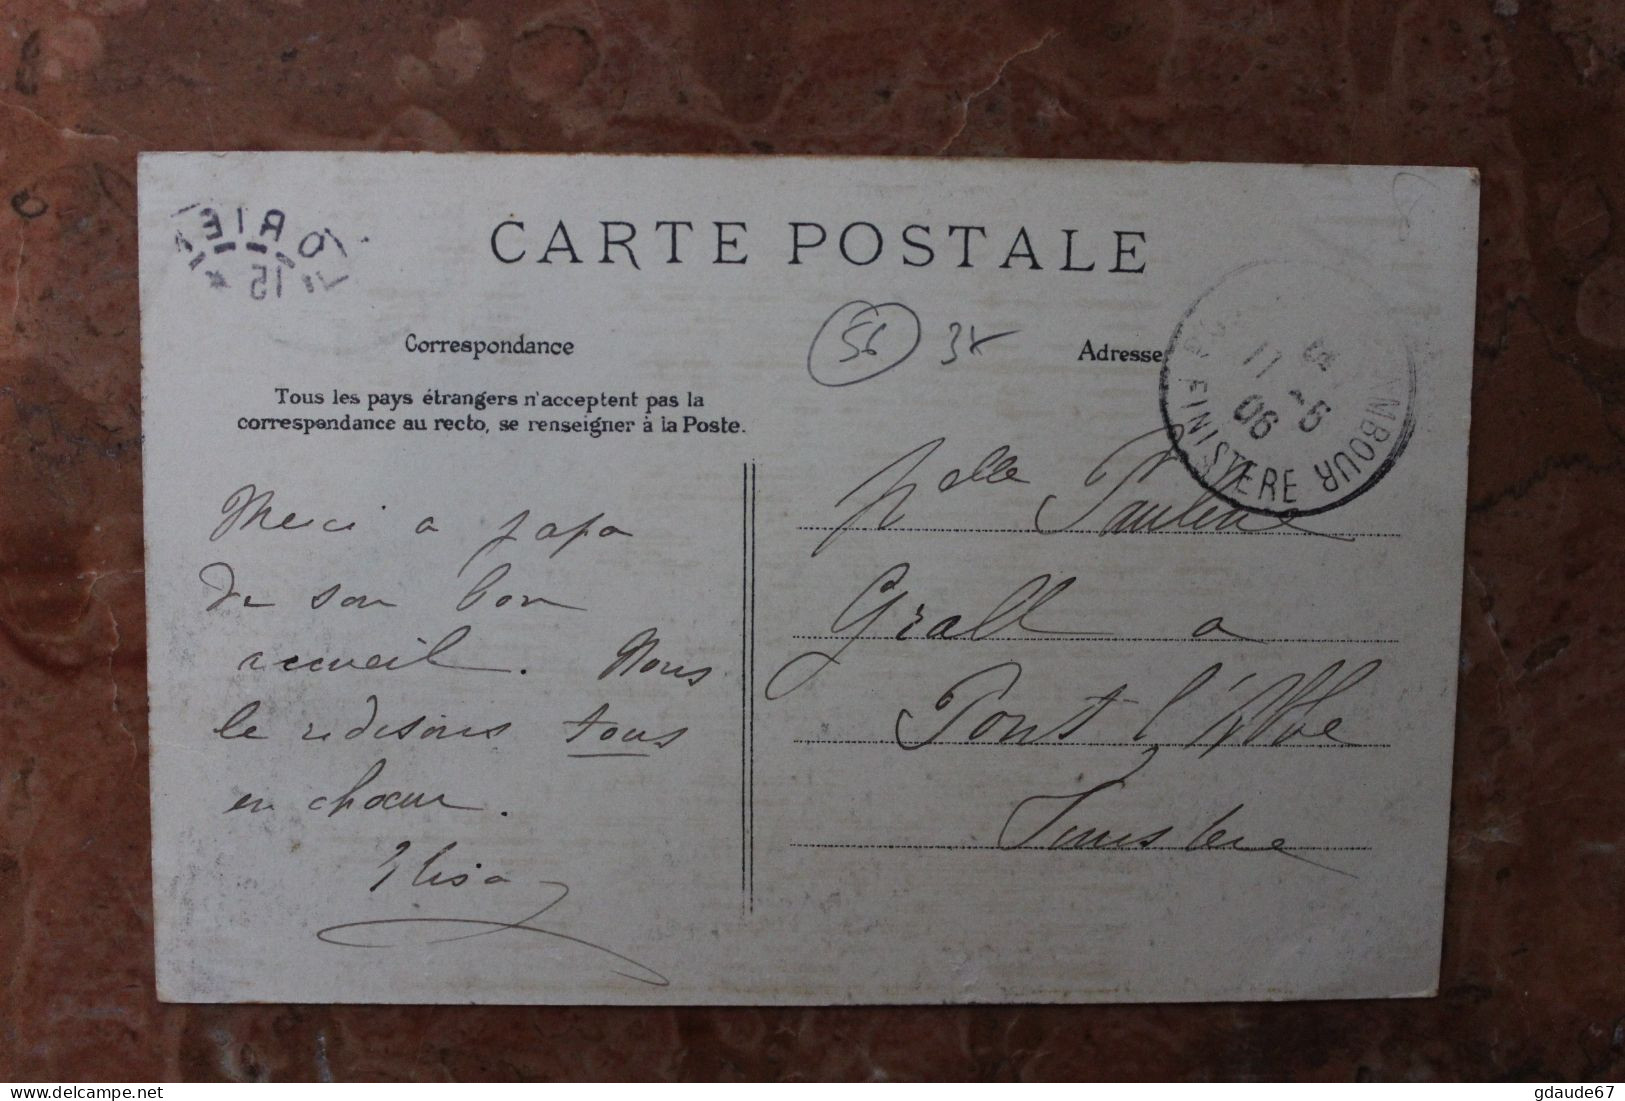 CARTE POSTALE
Correspondance
Tous les pays étrangers n'acceptent pas la
correspondance au recto, se renseigner à la Poste.
Merci a papa
de son bon
accueil. Nous
le redisons tous
en choeur.
Elisa
56
Adresse
11 -5
06
FINISTERE
Melle Pauline
Grall a
Pont l'Abbé
Finistere
gdaude67